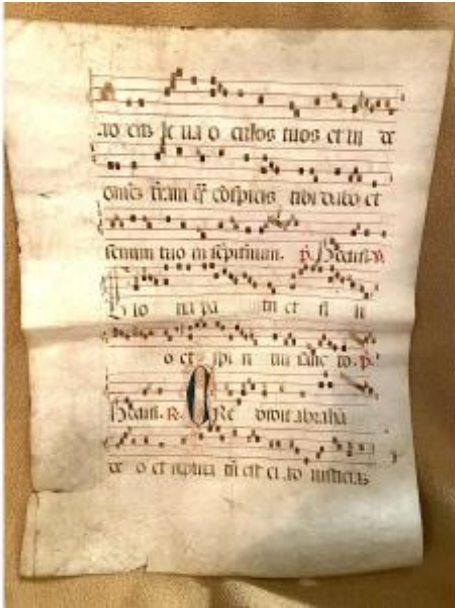 ro ei⁊ le ua o culos tuos et ui de
omēs t̄ram q̄ cōspicis tibi dabo et
semini tuo in sēpit̄num. p̄.
Glo ria pa tri et fi li
o et spi ri tui sanc to. p̄.
R. CRe didit abraha
de o et reputa tū est ei ad iusticia